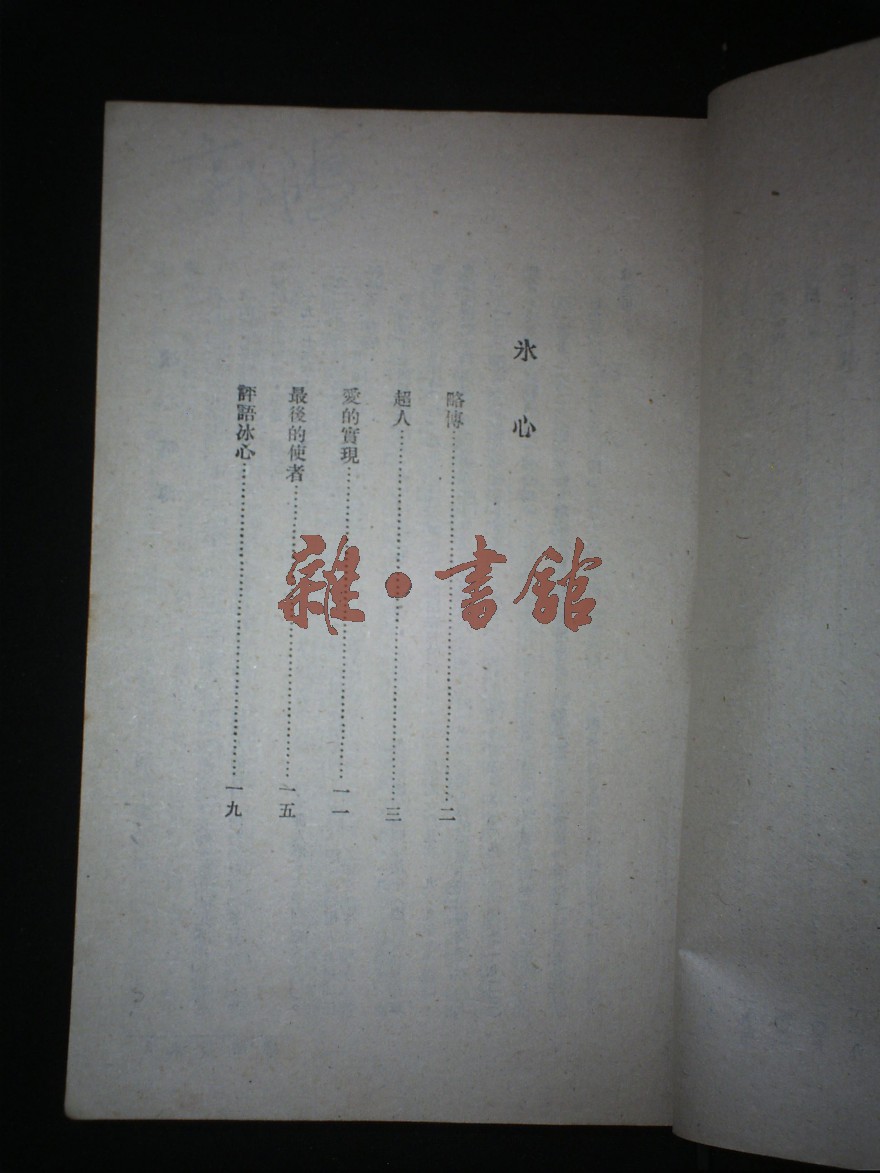 氷心
略傳……二
超人……三
愛的實現……一一
最後的使者……一五
評語冰心……一九
雜•書館